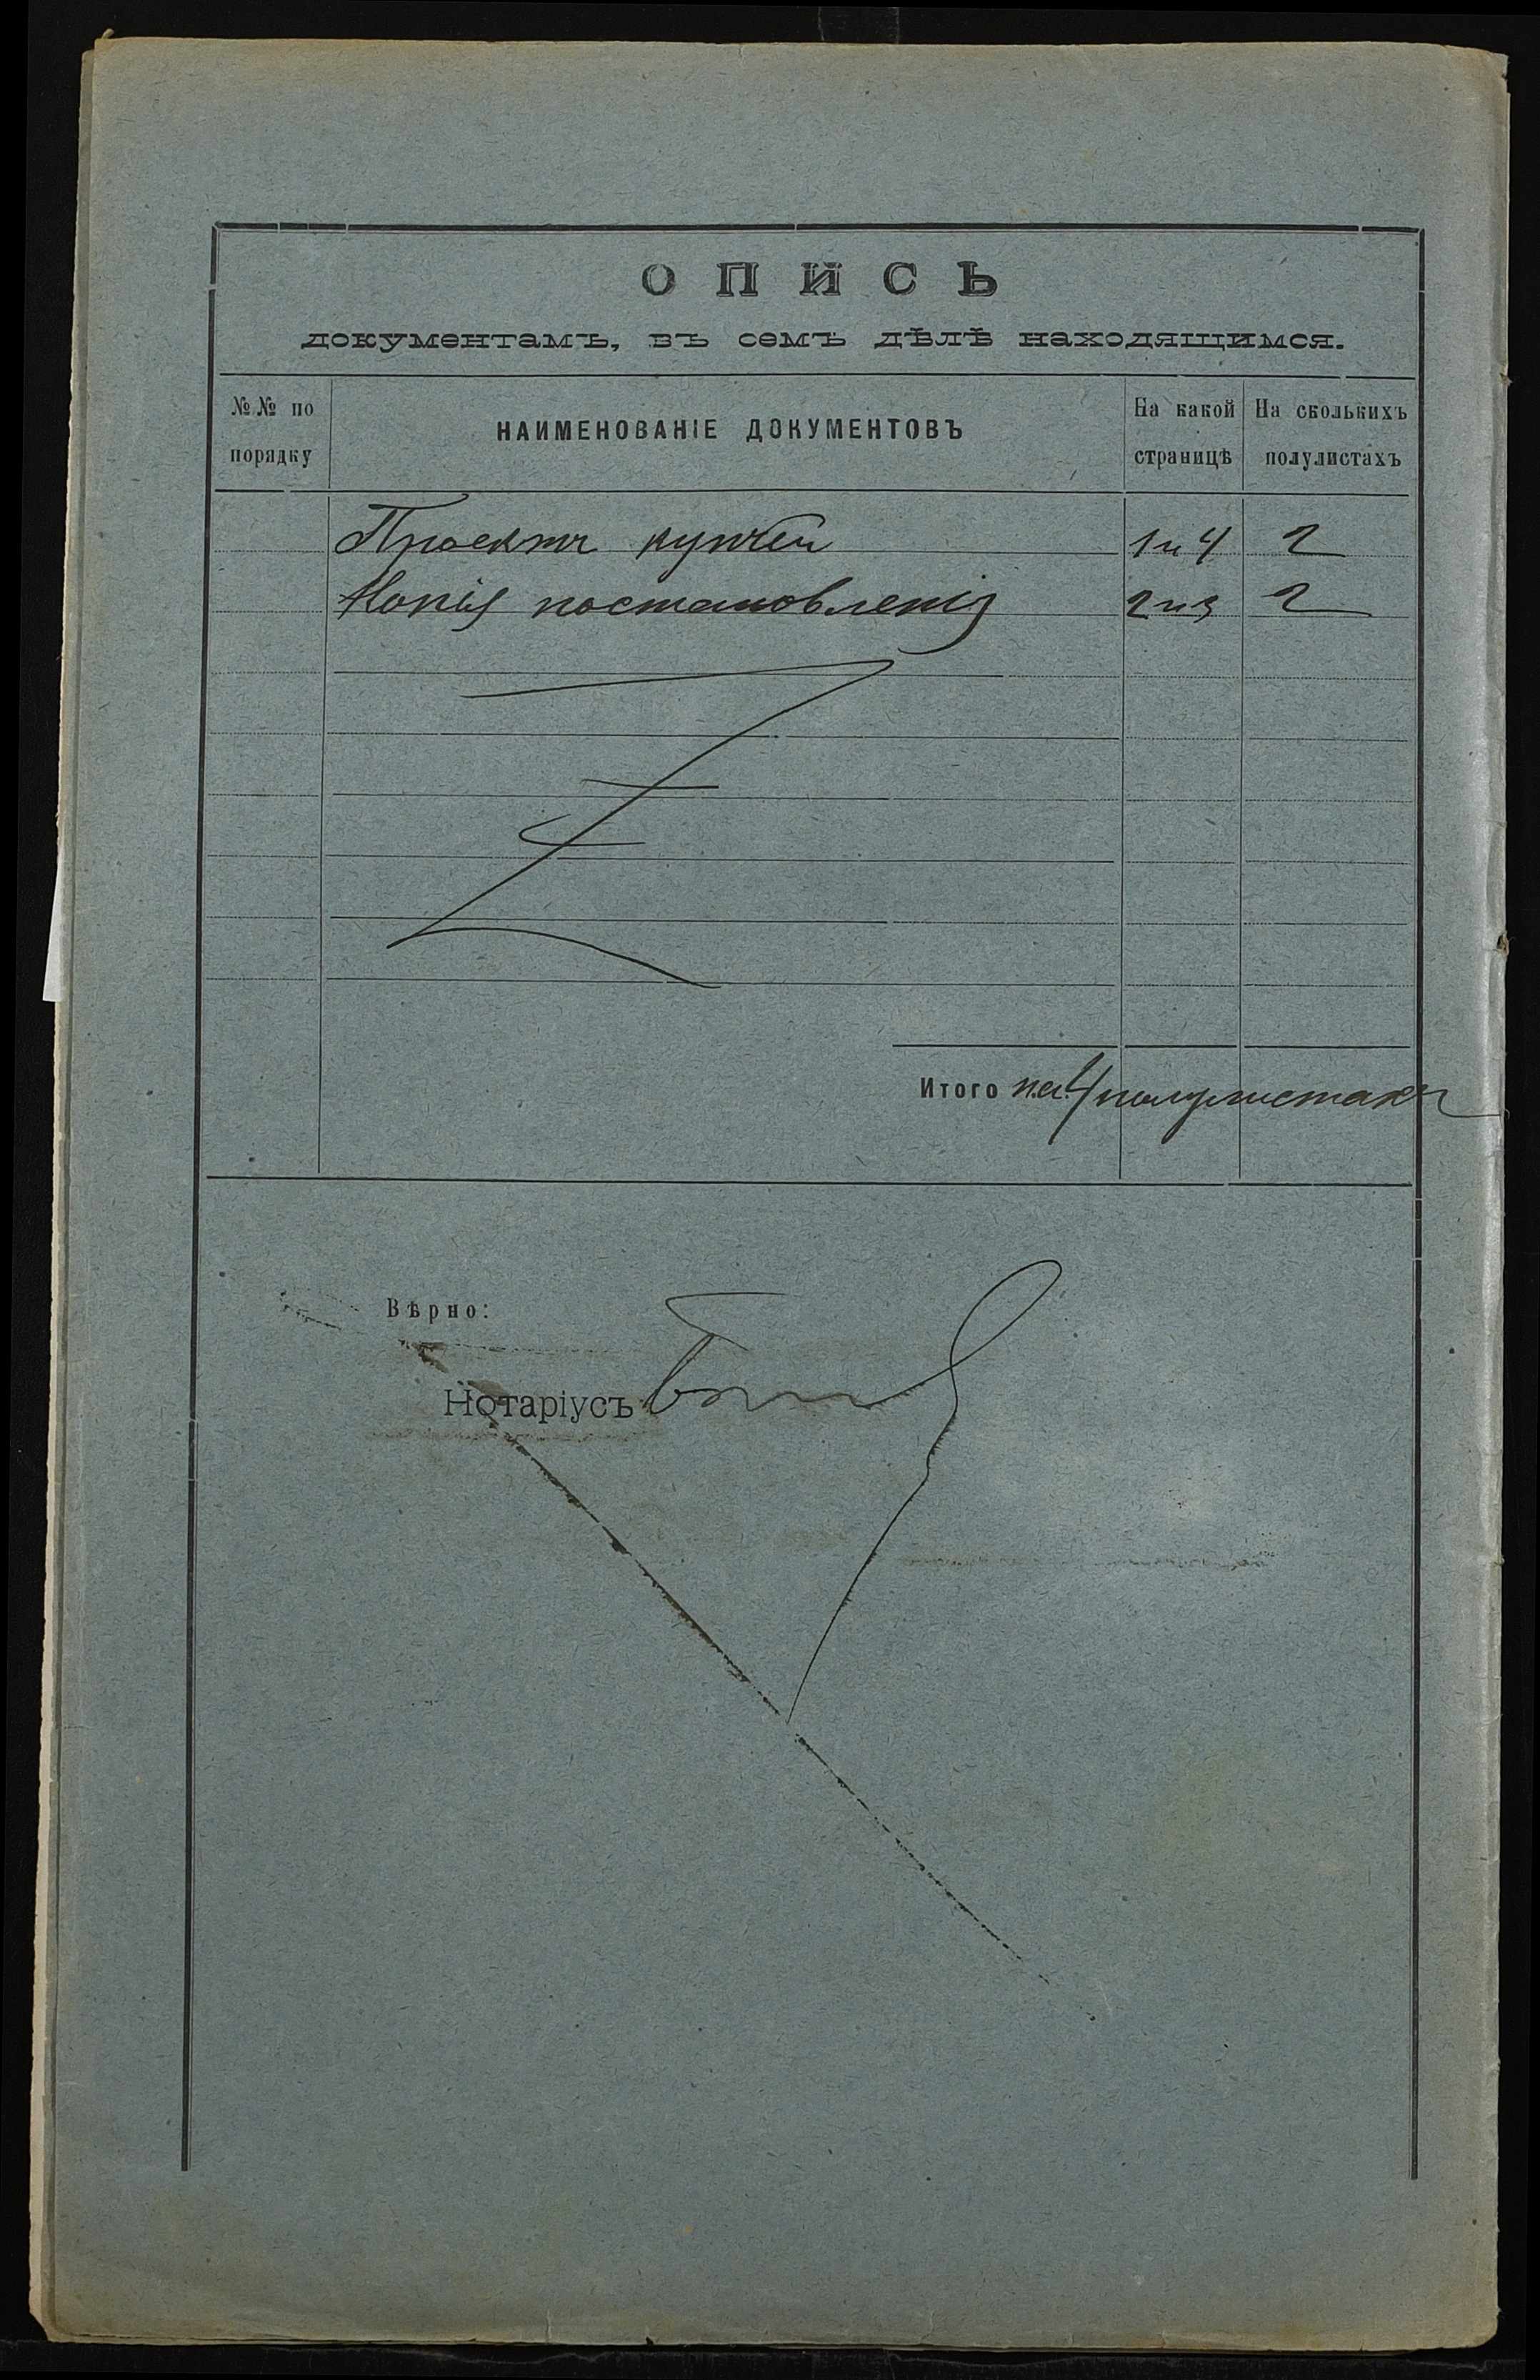 ОПИСЬ
документамъ, въ семъ дѣлѣ находящимся.
№№ по порядку
НАИМЕНОВАНІЕ ДОКУМЕНТОВЪ
На какой страницѣ
На сколькихъ полулистахъ
Проектъ купчей 1 и 4 2
Копія постановленія 2 и 3 2
Итого на 4 полулистахъ
Вѣрно:
Нотаріусъ